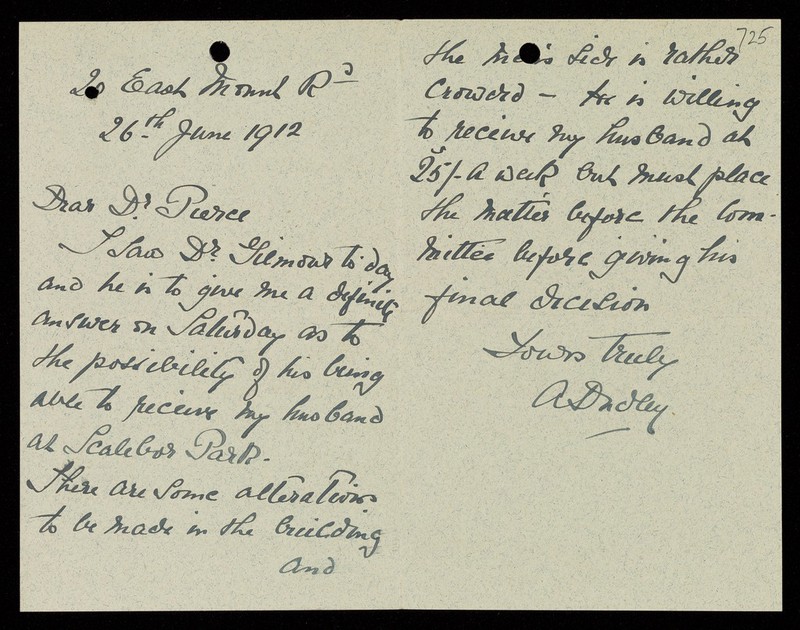 20 East Mount Rd
26th June 1912
Dear Dr Pierce
I saw Dr Gilmour to day
and he is to give me a definite
answer on Saturday as to
the possibility of his being
able to receive my husband
at Scalebor Park.
There are some alterations
to be made in the building
and
725
the men's side is rather
crowded – He is willing
to receive my husband at
25/- a week but must place
the matter before the Com-
mittee before giving his
final decision
Yours truly
A Dudley.